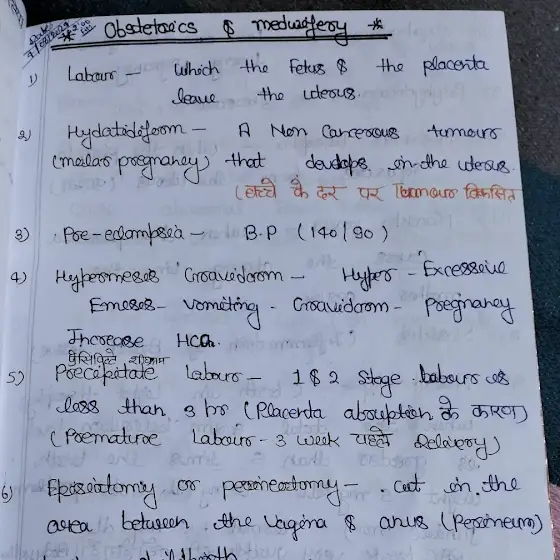 Obstetrics & medwifery
1) Labour - Which the Fetus & the placenta
leave the uterus.
2) Hydatidiform - A Non Cancerous tumour
(molar pregnancy) that develops in the uterus.
(बच्चे के दर पर Tumour विकसित
3) Pre-eclampsia - B.P (140/90)
4) Hyperemeses Gravidarm - Hyper - Excessive
Emeses - vomiting - Gravidarm - Pregnancy
Increase HCG.
5) Precipitate Labour - 1 & 2 Stage labour is
less than 3 hr (Placenta abruption के कारण)
(Premature Labour - 3 week पहले Delivery)
6) Episiotomy or perineotomy - cut in the
area between the Vagina & anus (Perineum)